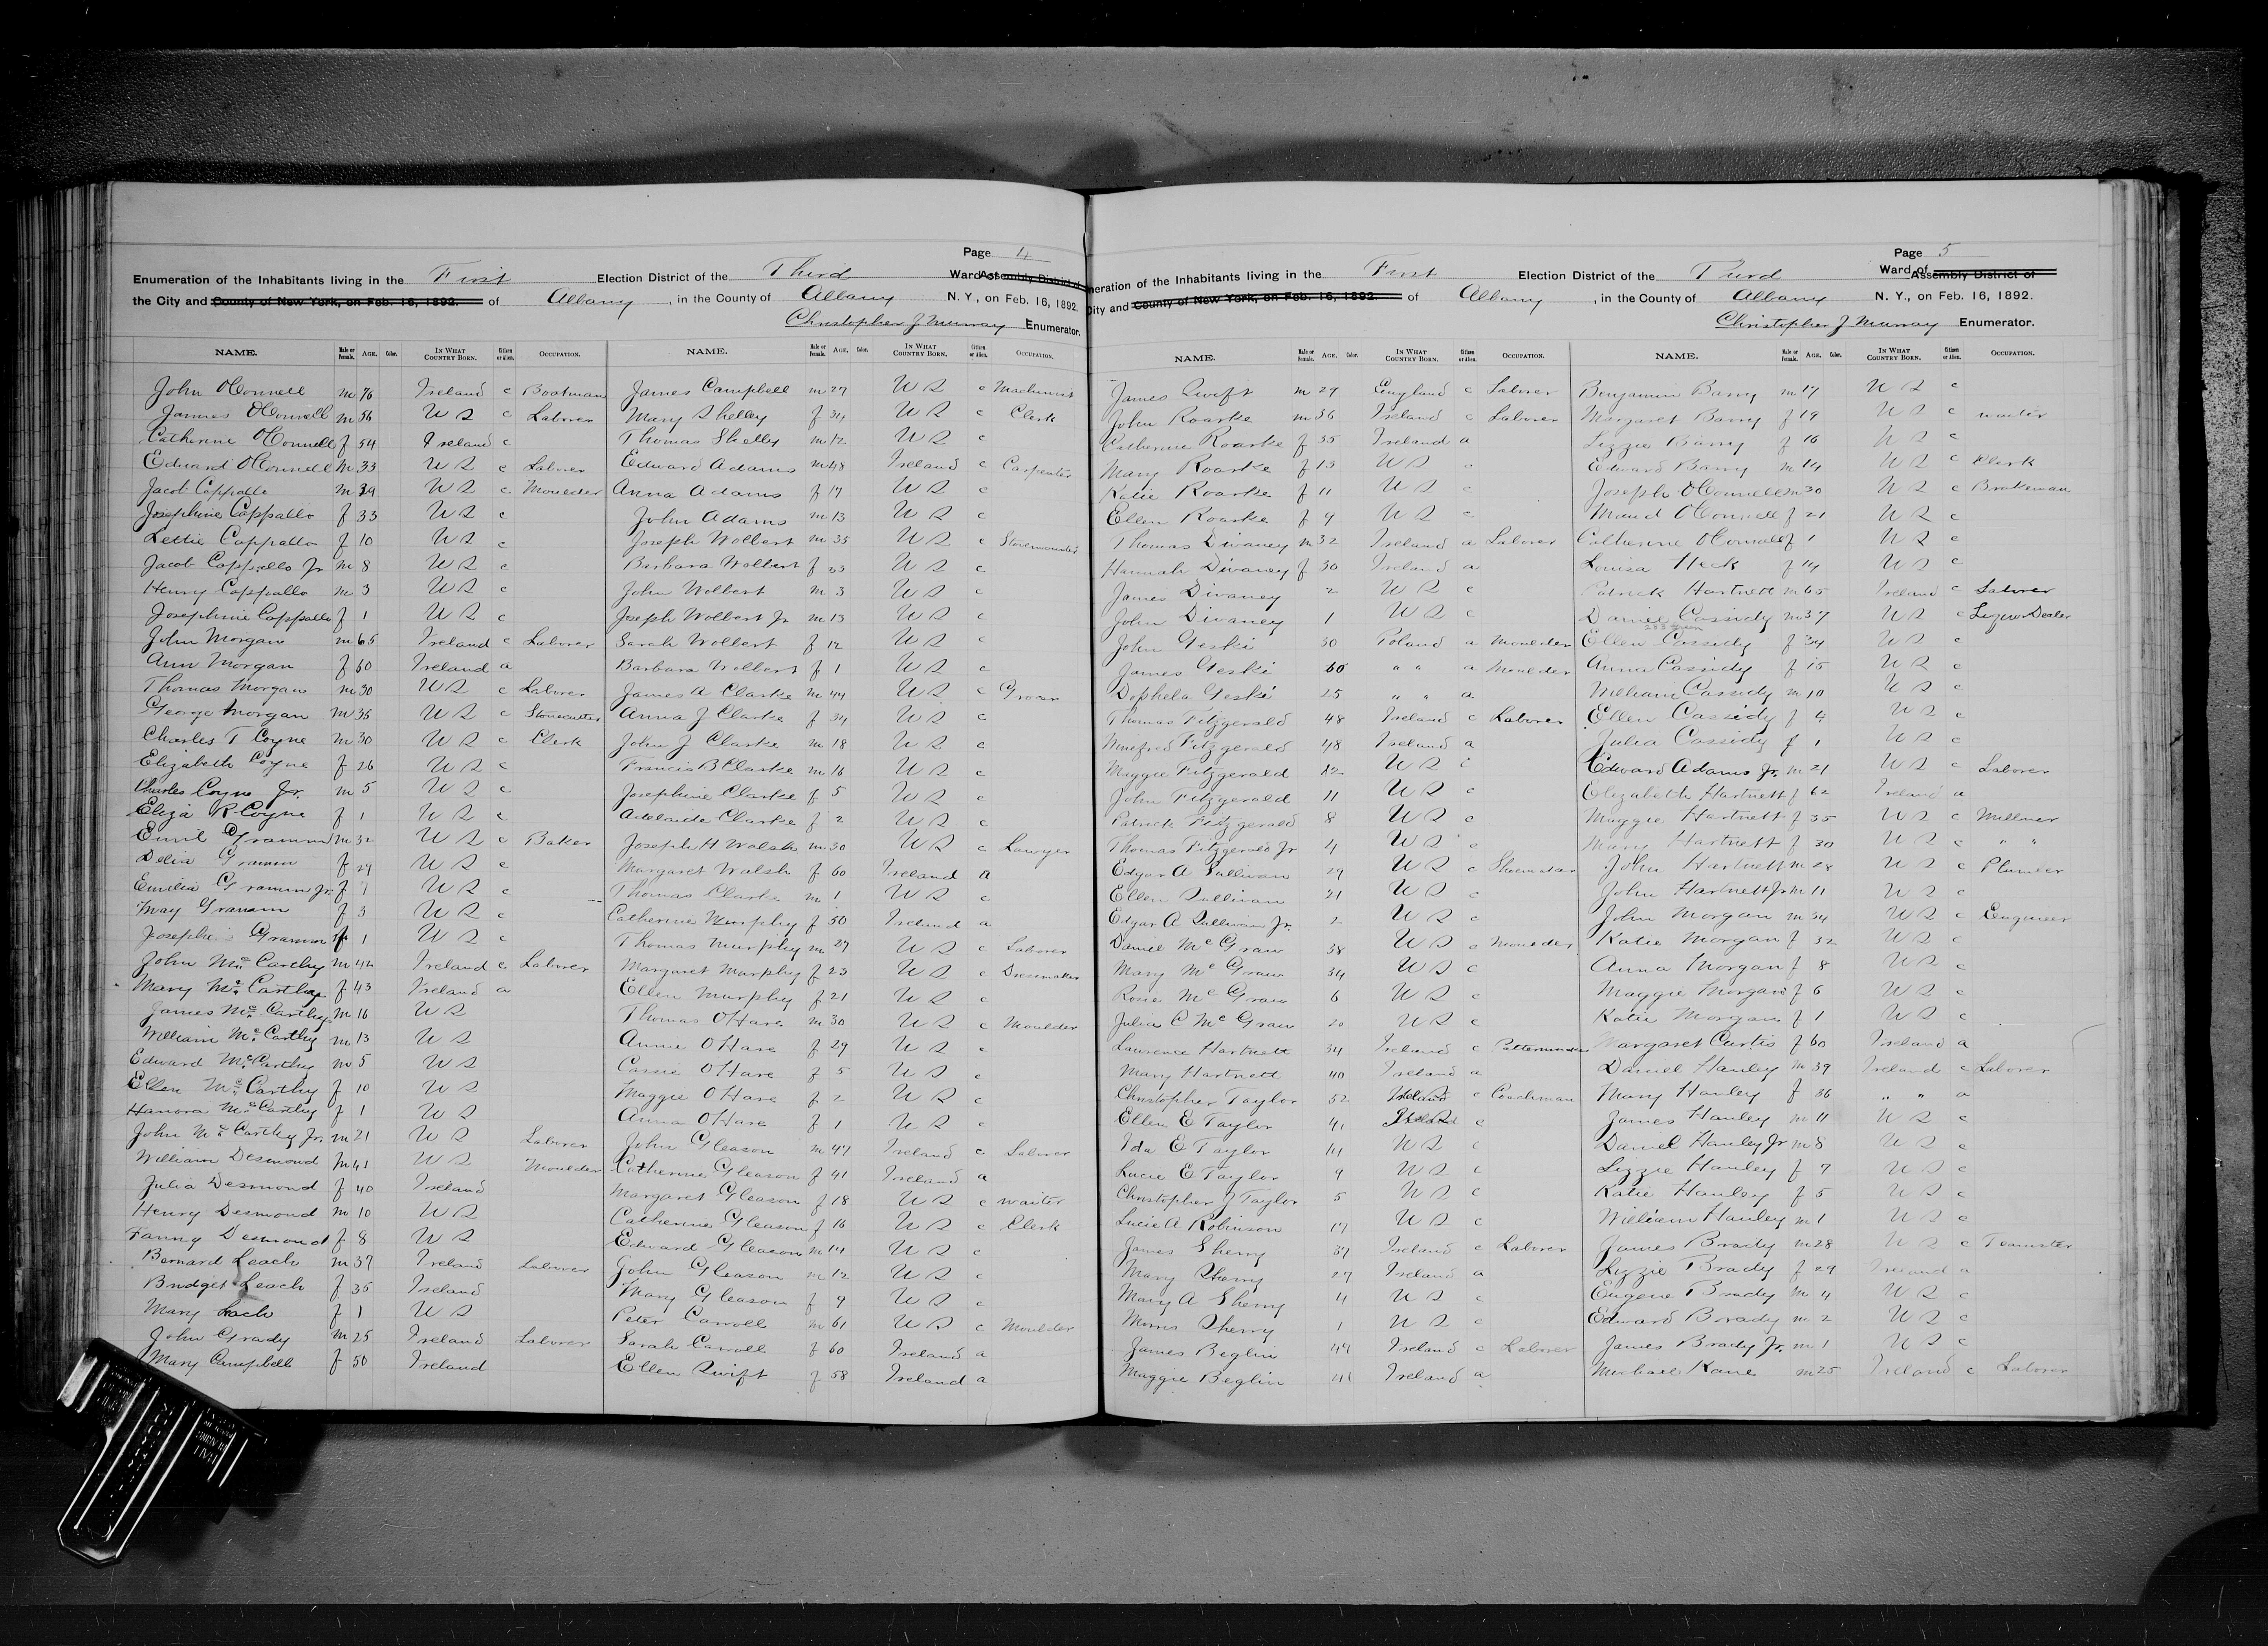 Page 4
Enumeration of the Inhabitants living in the First Election District of the Third Ward of Assembly District of
the City and County of New York, on Feb. 16, 1892. of Albany, in the County of Albany N. Y., on Feb. 16, 1892.
Christopher J Murray Enumerator.
NAME. Male or Female. AGE. Color. IN WHAT COUNTRY BORN. Citizen or Alien. OCCUPATION.
John OConnell m 76 Ireland c Boatman
James OConnell m 56 U S c Laborer
Catherine OConnell f 54 Ireland c
Edward OConnell m 33 U S c Laborer
Jacob Cappallo m 39 U S c Moulder
Josephine Cappallo f 33 U S c
Lettie Cappallo f 10 U S c
Jacob Cappallo Jr m 8 U S c
Henry Cappallo m 3 U S c
Josephine Cappallo f 1 U S c
John Morgan m 65 Ireland c Laborer
Ann Morgan f 60 Ireland a
Thomas Morgan m 30 U S c Laborer
George Morgan m 36 U S c Stonecutter
Charles T Coyne m 30 U S c Clerk
Elizabeth Coyne f 26 U S c
Charles Coyne Jr. m 5 U S c
Eliza R Coyne f 1 U S c
Emil Gramm m 32 U S c Baker
Delia Gramm f 29 U S c
Emilia Gramm Jr. f 7 U S c
May Gramm f 3 U S c
Gramm f 1 U S c
John McCarthy m 42 Ireland c Laborer
Mary McCarthy f 43 Ireland a
James McCarthy m 16 U S
William McCarthy m 13 U S
Edward McCarthy m 5 U S
Ellen McCarthy f 10 U S
Hanora McCarthy f 1 U S
John McCarthy Jr. m 21 U S Laborer
William Desmond m 41 U S Moulder
Julia Desmond f 40 Ireland
Henry Desmond m 10 U S
Fanny Desmond f 8 U S
Bernard Leach m 37 Ireland Laborer
Bridget Leach f 35 Ireland
Mary Leach f 1 U S
John Grady m 25 Ireland Laborer
Mary Campbell f 50 Ireland
NAME. Male or Female. AGE. Color. IN WHAT COUNTRY BORN. Citizen or Alien. OCCUPATION.
James Campbell m 27 U S c Machinist
Mary Shelley f 34 U S c Clerk
Thomas Shelley m 12 U S c
Edward Adams m 48 Ireland c Carpenter
Anna Adams f 17 U S c
John Adams m 13 U S c
Joseph Wolbert m 35 U S c Stovemounter
Barbara Wolbert f 33 U S c
John Wolbert m 3 U S c
Joseph Wolbert Jr m 13 U S c
Sarah Wolbert f 12 U S c
Barbara Wolbert f 1 U S c
James A Clarke m 44 U S c Grocer
Anna J Clarke f 34 U S c
John J Clarke m 18 U S c
Francis B Clarke m 16 U S c
Josephine Clarke f 5 U S c
Adelaide Clarke f 2 U S c
Joseph H Walsh m 30 U S c Lawyer
Margaret Walsh f 60 Ireland a
Thomas Clarke m 1 U S c
Catherine Murphy f 50 Ireland a
Thomas Murphy m 27 U S c Laborer
Margaret Murphy f 23 U S c Dressmaker
Ellen Murphy f 21 U S c
Thomas OHare m 30 U S c Moulder
Annie OHare f 29 U S c
Cassie OHare f 5 U S c
Maggie OHare f 2 U S c
Anna OHare f 1 U S c
John Gleason m 47 Ireland c Laborer
Catherine Gleason f 41 Ireland a
Margaret Gleason f 18 U S c waiter
Catherine Gleason f 16 U S c Clerk
Edward Gleason m 14 U S c
John Gleason m 12 U S c
Mary Gleason f 9 U S c
Peter Carroll m 61 U S c Moulder
Sarah Carroll f 60 Ireland a
Ellen Swift f 58 Ireland a
Page 5
neration of the Inhabitants living in the First Election District of the Third Ward of Assembly District of
City and County of New York, on Feb. 16, 1892. of Albany, in the County of Albany N. Y., on Feb. 16, 1892.
Christopher J Murray Enumerator.
NAME. Male or Female. AGE. Color. IN WHAT COUNTRY BORN. Citizen or Alien. OCCUPATION.
James Swift m 29 England c Laborer
John Roarke m 36 Ireland c Laborer
Catherine Roarke f 35 Ireland a
Mary Roarke f 13 U S c
Katie Roarke f 11 U S c
Ellen Roarke f 9 U S c
Thomas Divaney m 32 Ireland a Laborer
Hannah Divaney f 30 Ireland a
James Divaney 2 U S c
John Divaney 1 U S c
John Geski 30 Poland a Moulder
James Geski 60 " " a Moulder
Dophela Geski 25 " " a
Thomas Fitzgerald 48 Ireland c Laborer
Winefred Fitzgerald 48 Ireland a
Maggie Fitzgerald 12 U S c
John Fitzgerald 11 U S c
Patrick Fitzgerald 8 U S c
Thomas Fitzgerald Jr 4 U S c
Edgar A Sullivan 29 U S c
Ellen Sullivan 21 U S c
Edgar A Sullivan Jr. 2 U S c
Daniel McGraw 38 U S c Moulder
Mary McGraw 34 U S c
Rosie McGraw 6 U S c
Julia C McGraw U S c
Lawrence Hartnett 34 Ireland c
Mary Hartnett 40 Ireland a
Christopher Taylor 52 Ireland c Coachman
Ellen E Taylor 41 c
Ida E Taylor 14 U S c
Lucie E Taylor 9 U S c
Christopher J Taylor 5 U S c
Lucie A Robinson 17 U S c
James Sherry 37 Ireland c Laborer
Mary Sherry 27 Ireland a
Mary A Sherry 4 U S c
Morris Sherry 1 U S c
James Beglin 44 Ireland c Laborer
Maggie Beglin 41 Ireland a
NAME. Male or Female. AGE. Color. IN WHAT COUNTRY BORN. Citizen or Alien. OCCUPATION.
Benjamin Barry m 17 U S c
Margaret Barry f 19 U S c waiter
Lizzie Barry f 16 U S c
Edward Barry m 14 U S c Clerk
Joseph OConnell m 30 U S c Brakeman
Maud OConnell f 21 U S c
Catherine OConnell f 1 U S c
Louisa Heck f 14 U S c
Patrick Hartnett m 65 Ireland c Laborer
Daniel Cassidy m 37 U S c Liquor Dealer
Ellen Cassidy f 34 U S c
Anna Cassidy f 15 U S c
William Cassidy m 10 U S c
Ellen Cassidy f 4 U S c
Julia Cassidy f 1 U S c
Edward Adams Jr. m 21 U S c Laborer
Elizabeth Hartnett f 62 Ireland a
Maggie Hartnett f 35 U S c Millner
Mary Hartnett f 30 U S c " "
John Hartnett m 28 U S c Plumber
John Hartnett Jr m 11 U S c
John Morgan m 34 U S c Engineer
Katie Morgan f 32 U S c
Anna Morgan f 8 U S c
Maggie Morgan f 6 U S c
Katie Morgan f 1 U S c
Margaret Curtis f 60 Ireland a
Daniel Hanley m 39 Ireland c Laborer
Mary Hanley f 36 " " a
James Hanley m 11 U S c
Daniel Hanley Jr m 8 U S c
Lizzie Hanley f 7 U S c
Katie Hanley f 5 U S c
William Hanley m 1 U S c
James Brady m 28 U S c Teamster
Lizzie Brady f 29 Ireland a
Eugene Brady m 4 U S c
Edward Brady m 2 U S c
James Brady Jr. m 1 U S c
Michael Kane m 25 Ireland c Laborer